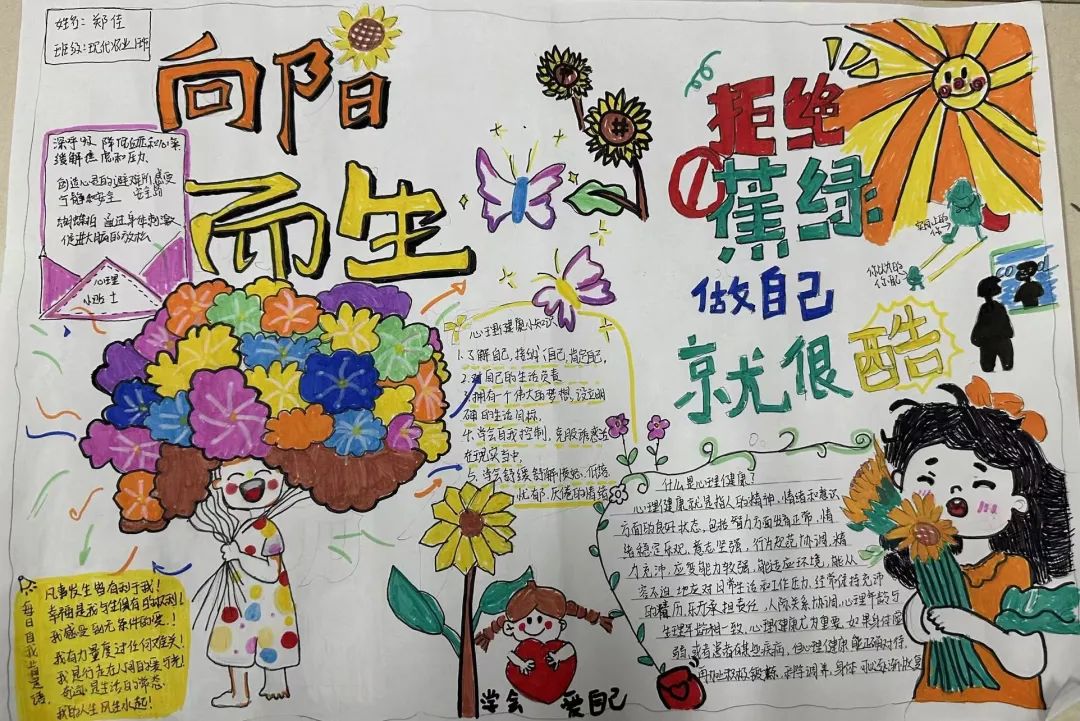 姓名:郑佳
班级:现代农业
向阳
而生
深呼吸 降低
缓解焦虑和压力
创造心灵的避难所感受
宁静和安全
蝴蝶拍 通过身体刺激
促进大脑的放松
心理
小贴士
拒绝
蕉绿
做自己
就很
酷
实际上的
你
你以为的
你
心理健康小知识
1.了解自己,接纳自己,肯定自己,
2.对自己的生活负责
3.拥有一个伟大的梦想,设立明
确的生活目标,
4.学会自我控制,克服诱惑活
在现实当中,
5、学会舒缓
忧郁、厌倦的情绪
什么是心理健康?
心理健康就是指人的精神,情绪和意识
方面的良好状态,包括智力方面发育正常,情
绪稳定乐观,意志坚强,行为规范协调,精
力充沛,应变能力较强,能适应环境,能从
容不迫地应对日常生活和工作压力,经常保持充沛
的精力,乐于承担责任,人际关系协调,心理年龄与
生理年龄相一致,心理健康尤为重要,如果身体虚
弱,或者患有某些疾病,但心理健康,能正确对待,
再加上积极锻炼,调养,身体可以逐渐恢复
每日自我
凡事发生皆有利于我!
幸福是我与生俱有的权利!
我感受到无条件的爱!
我有力量度过任何难关!
我是行走在人间的
是生活的常态,
我的人生风生水起!
学会 爱自己